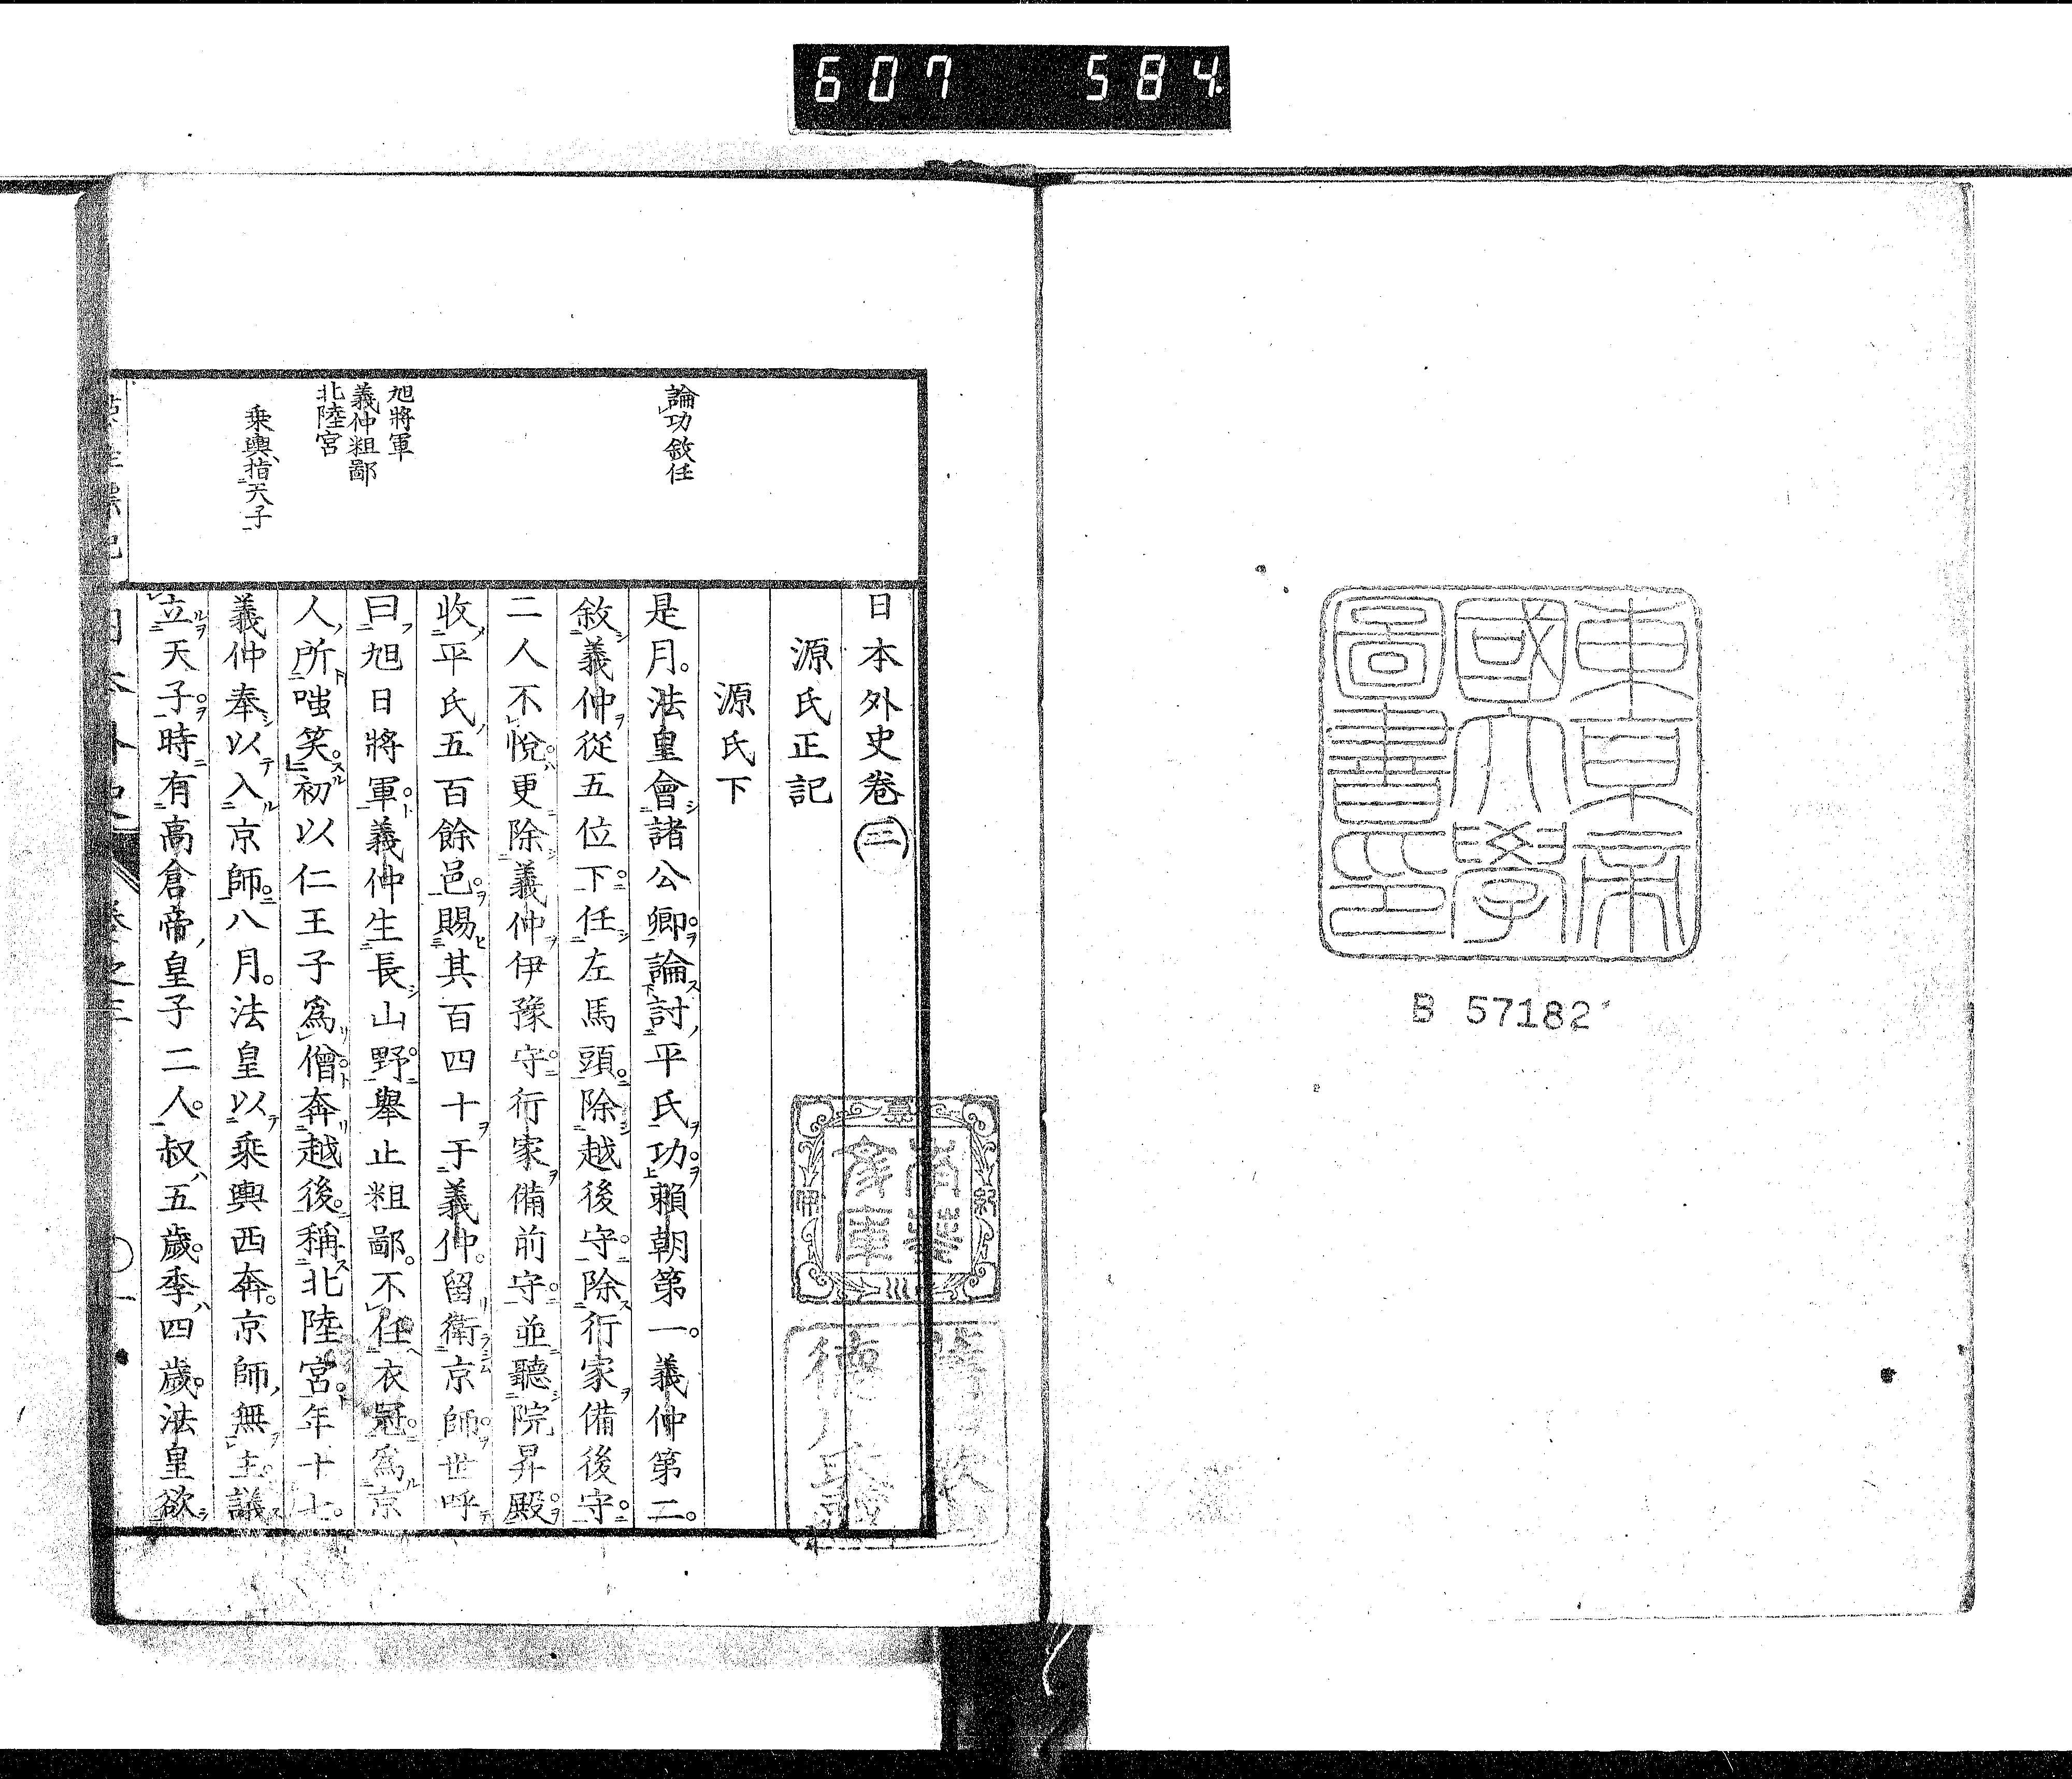 607 584
東京帝
國大學
圖書印
B 57182
日本外史卷三
源氏正記
源氏下
論功敘任
是月。法皇會諸公卿。論討平氏功。賴朝第一。義仲第二。
敘義仲從五位下。任左馬頭。除越後守。除行家備後守。
二人不悅。更除義仲伊豫守。行家備前守。並聽院昇殿。
收平氏五百餘邑。賜其百四十于義仲。留衛京師。世呼
旭將軍
義仲粗鄙
北陸宮
曰旭日將軍。義仲生長山野。舉止粗鄙。不任衣冠。爲京
人所嗤笑。初以仁王子爲僧。奔越後。稱北陸宮。年十七。
乘輿、指天子
義仲奉以入京師。八月。法皇以乘輿西奔。京師無主。議
立天子。時有高倉帝皇子二人。叔五歲。季四歲。法皇欲